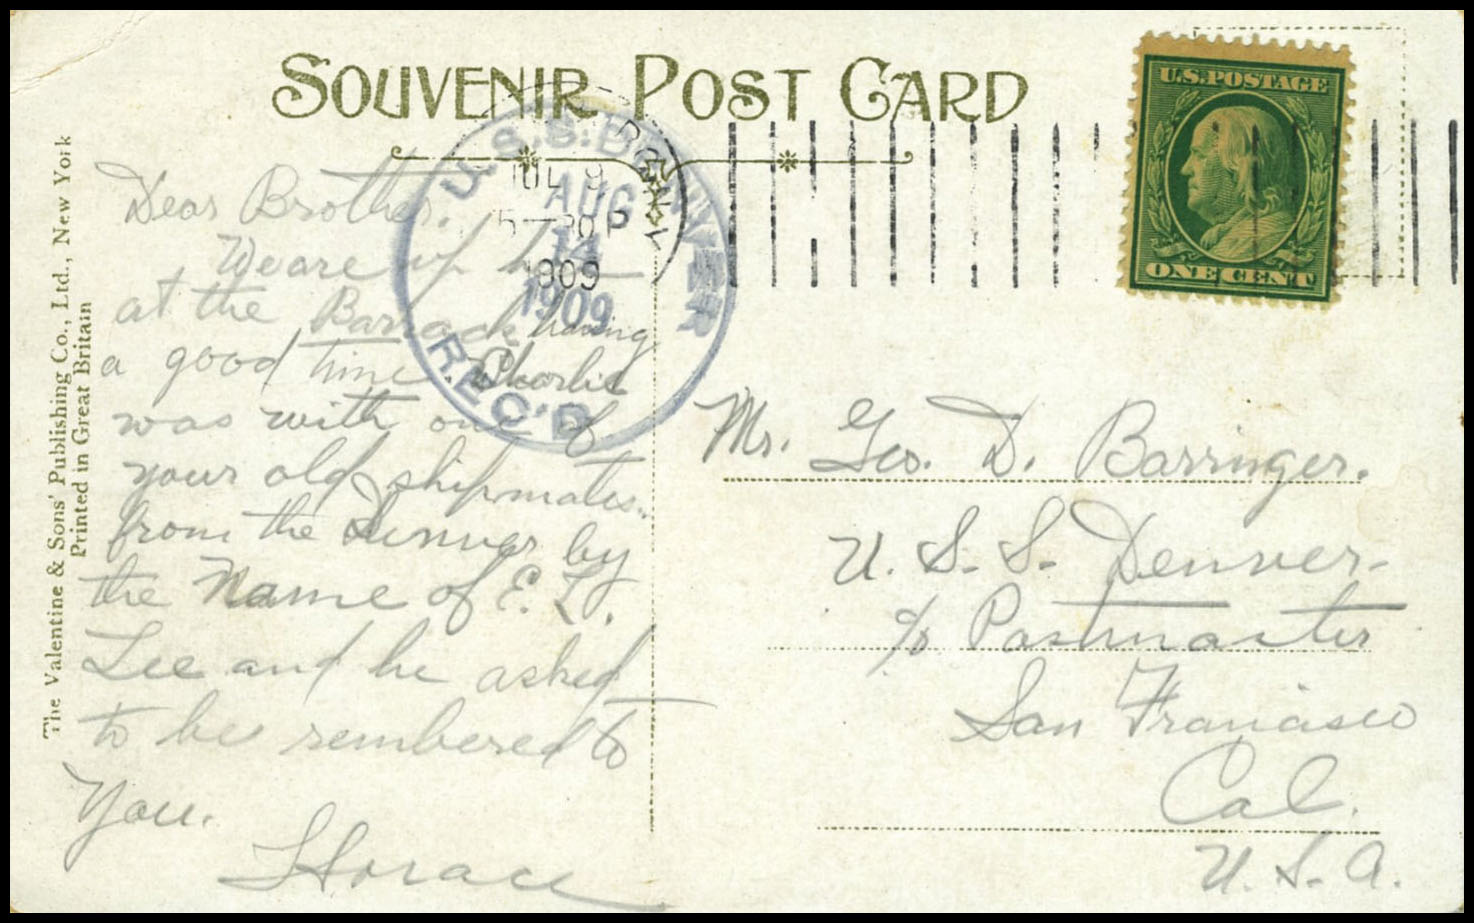 SOUVENIR POST CARD
U.S. POSTAGE
ONE CENT
U.S.S. DENVER
AUG
14
1909
REC'D
JUL 9
5-30 P
1909
N.Y.
The Valentine & Sons' Publishing Co., Ltd., New York
Printed in Great Britain
Dear Brother.
We are up here
at the Barrack having
a good time. Charlie
was with one of
your old shipmates.
from the Denver by
the Name of E. L.
Lee and he asked
to be rembered to
You.
Horace
Mr. Geo. D. Barringer.
U. S. S. Denver.
c/o Postmaster
San Francisco
Cal.
U. S. A.